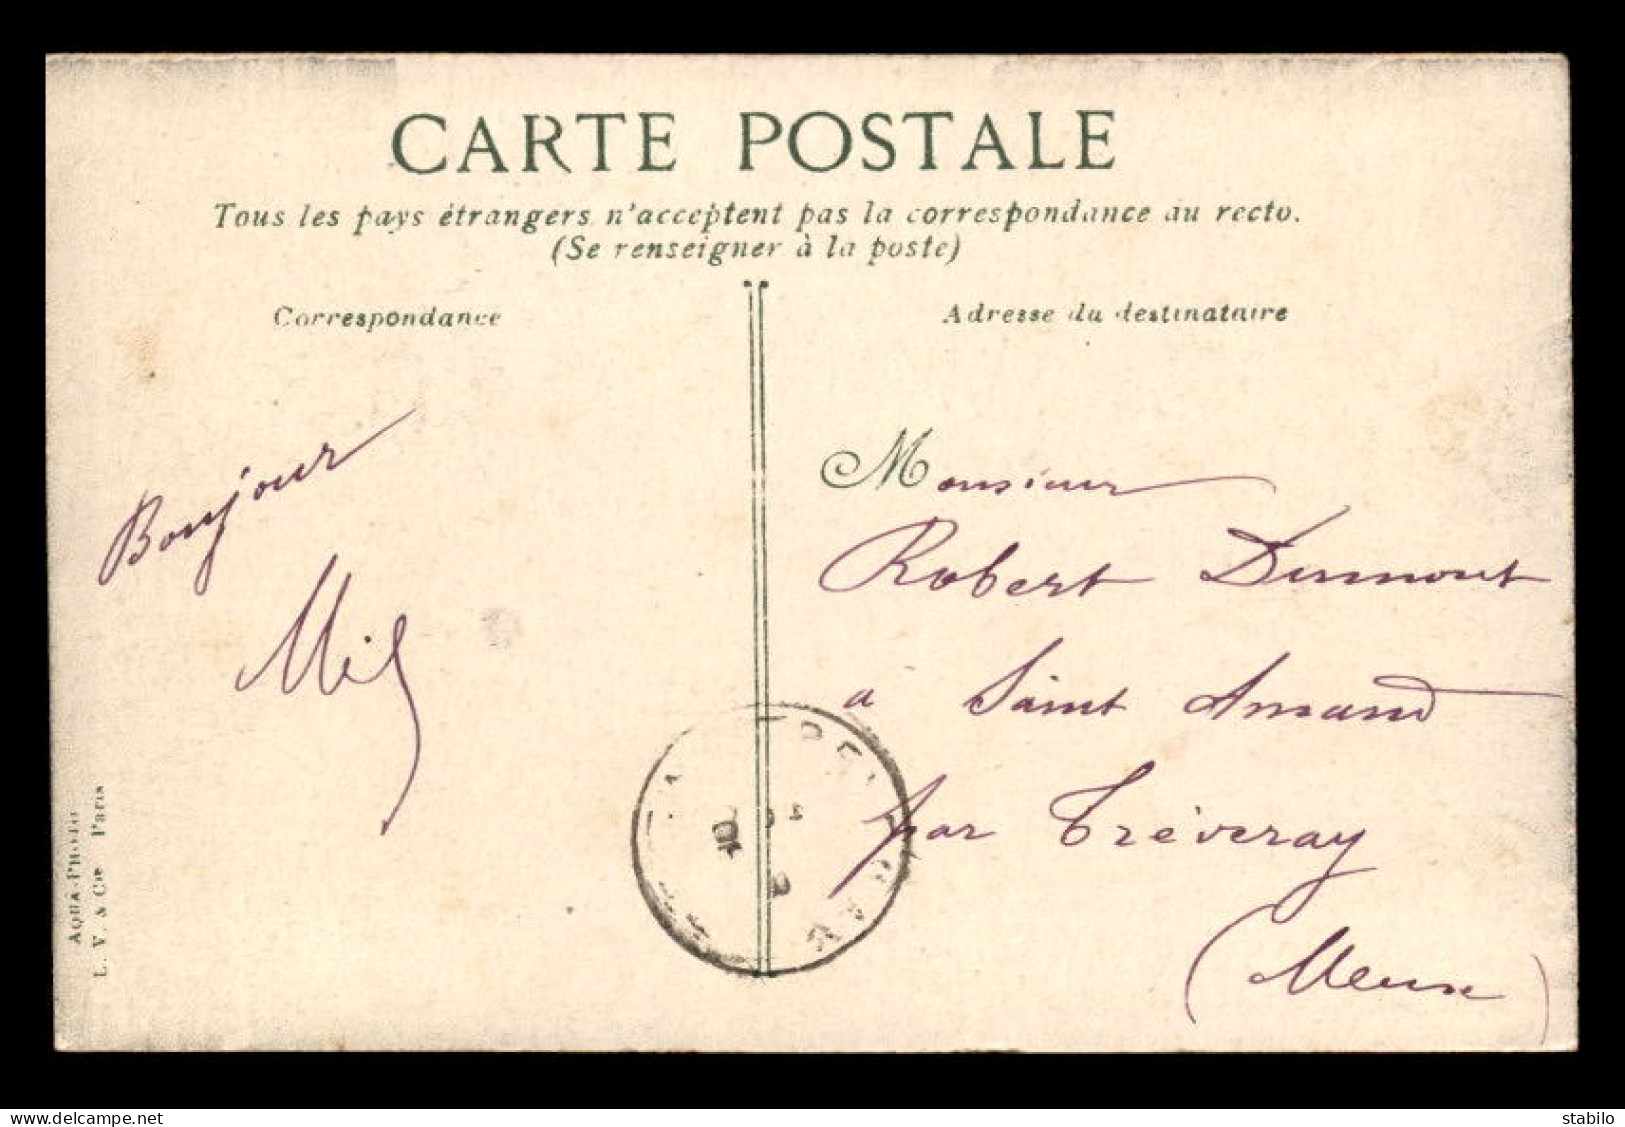 CARTE POSTALE
Tous les pays étrangers n'acceptent pas la correspondance au recto.
(Se renseigner à la poste)
Correspondance
Adresse du destinataire
Bonjour
Monsieur
Robert Dumont
a Saint Amand
par Tréveray
(Meuse)
AQUA-PHOTO
L. V. & Cie Paris
www.delcampe.net
stabilo